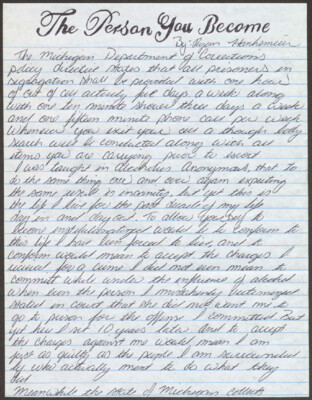 The Person You Become
By:
The Michigan Department of Corrections
policy directive states that all prisoners in
segregation shall be provided with one hour
of out of cell activity five days a week along
with one ten minute shower three days a week
and one fifteen minute phone call per week
Whenever you exit your cell a thorough body
search will be conducted along with all
items you are carrying prior to escort
I was taught in Alcoholics Anonymous, that to
do the same thing over and over again expecting
the same result is insanity, but yet this is
the life I live for the past of my life
day in and day out. To allow yourself to
become institutionalized would be to conform to
this life I have been forced to live, and to
conform would mean to accept the changes I
for a crime I did not even mean to
commit while under the influence of alcohol
when even the person I mistakenly
stated in court that she did not want me to
go to prison for the offense I committed. But
yet here I set 10 years later. And to accept
the charges against me would mean I am
just as guilty as the people I am surrounded
by who actually meant to do what they
did.
Meanwhile the state of Michigan collects